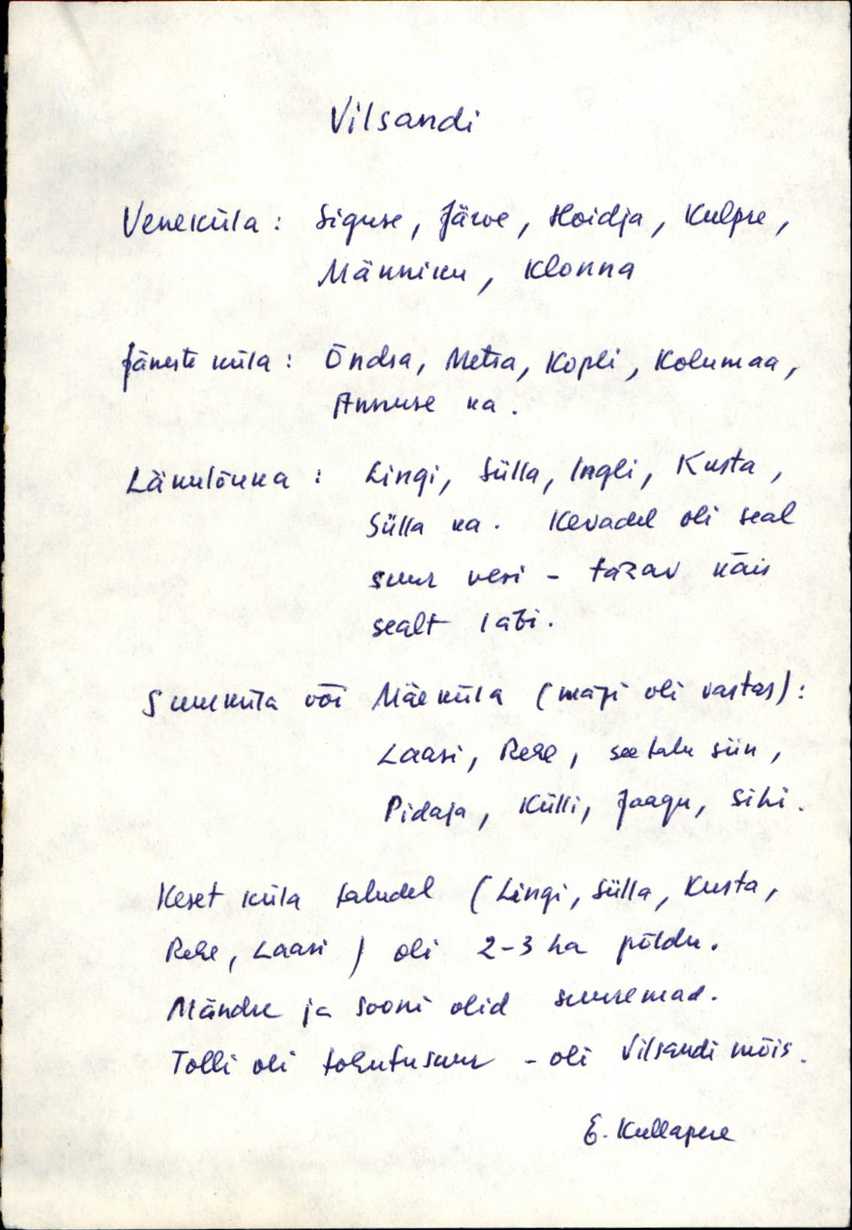 Vilsandi
Veneküla: Siguse, Järve, Hoidja, Kulpre,
Männiku, Klonna
Jäneste küla: Õndsa, Metsa, Kopli, Kolumaa,
Annuse ka.
Länulõuka: Lingi, Sülla, Ingli, Kusta,
Sülla ka. Kevadel oli seal
suur vesi - tazav käis
sealt läbi.
Suurküla või Mäeküla (mäji oli vastas):
Laasi, Rehe, see talu siin,
Pidaja, Külli, Jaagu, Sihi.
Keset küla taludel (Lingi, Sülla, Kusta,
Rehe, Laasi) oli 2-3 ha põldu.
Mändre ja Sooni olid suuremad.
Tolli oli tohutusuur - oli Vilsandi mõis.
E. Kullapere